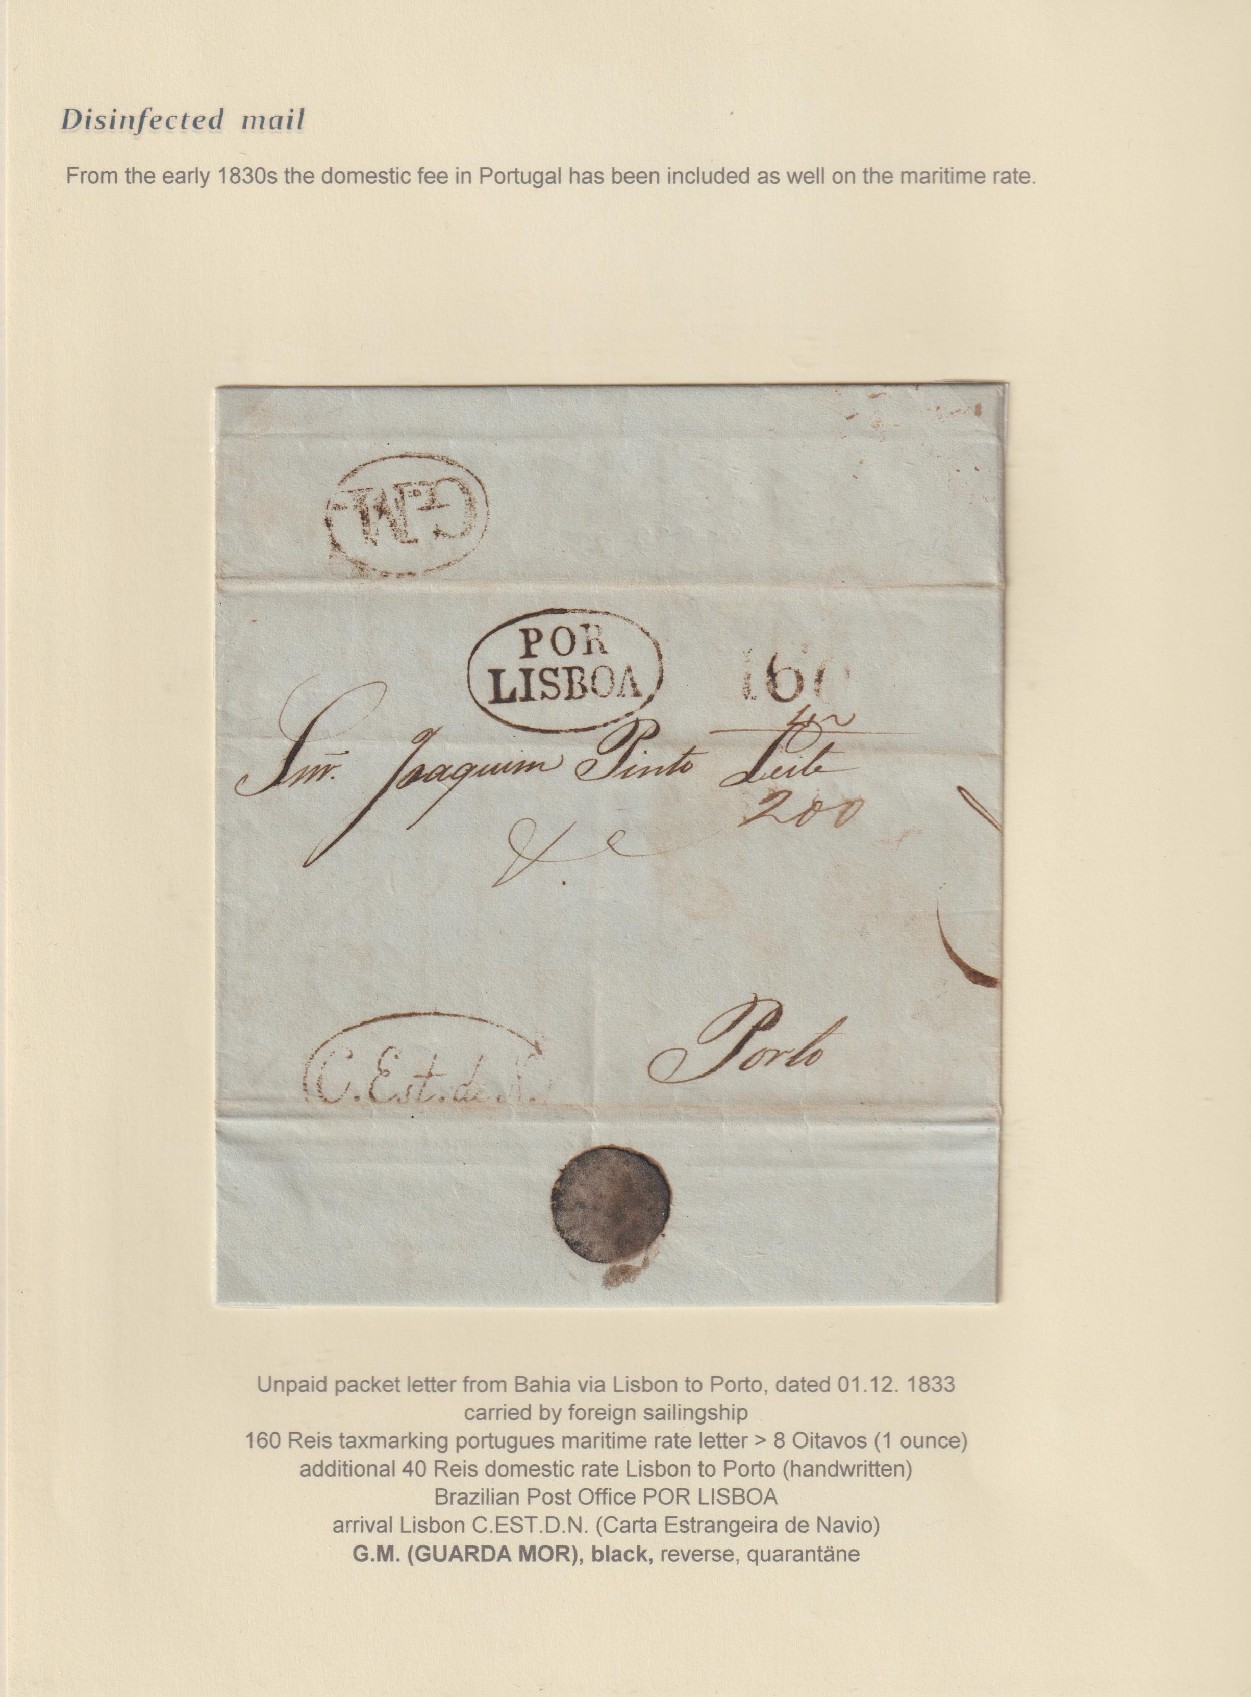 Disinfected mail
From the early 1830s the domestic fee in Portugal has been included as well on the maritime rate.
POR
LISBOA
160
40
Snr. Joaquim Pinto Leite
200
&c.
Porto
C.Est.de N.
Unpaid packet letter from Bahia via Lisbon to Porto, dated 01.12. 1833
carried by foreign sailingship
160 Reis taxmarking portugues maritime rate letter > 8 Oitavos (1 ounce)
additional 40 Reis domestic rate Lisbon to Porto (handwritten)
Brazilian Post Office POR LISBOA
arrival Lisbon C.EST.D.N. (Carta Estrangeira de Navio)
G.M. (GUARDA MOR), black, reverse, quarantäne